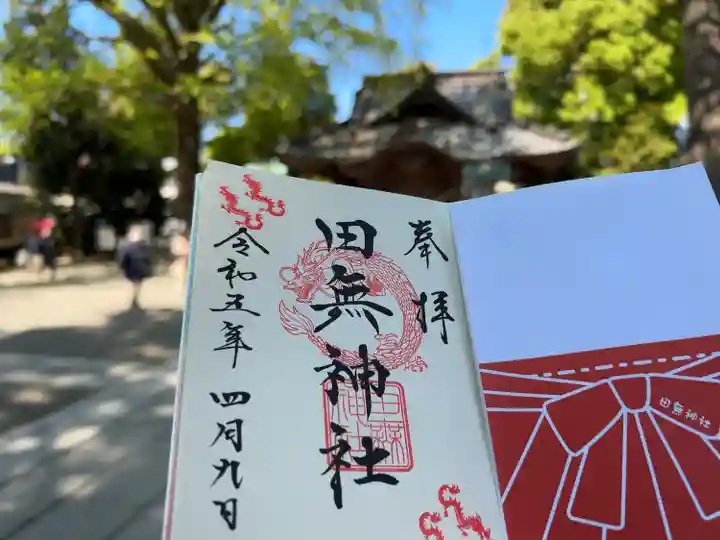 奉拝
田無神社
令和五年 四月九日
田無神社